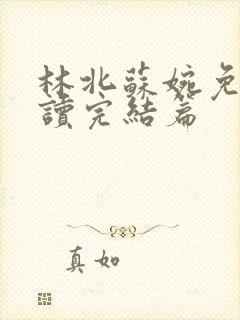 林北蘇婉免
讀完結篇
真如